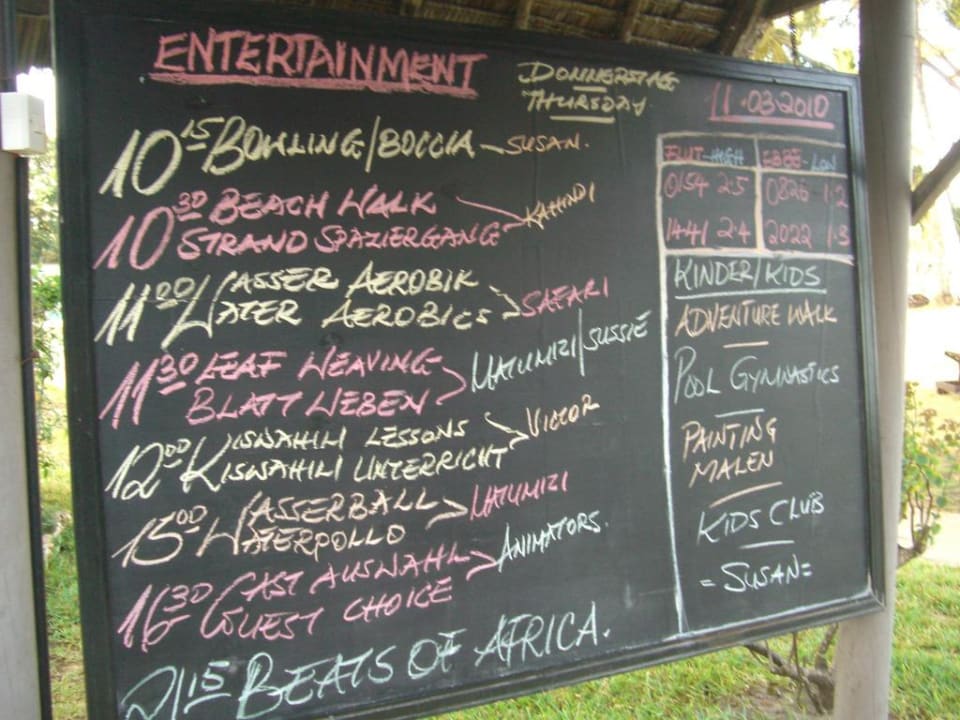 ENTERTAINMENT
DONNERSTAG
THURSDAY
11.03.2010
10 15 BOWLING/BOCCIA - SUSAN.
10 30 BEACH WALK
STRAND SPAZIERGANG KAHINDI
11 00 WASSER AEROBIK
WATER AEROBICS SAFARI
11 30 LEAF WEAVING
BLATT WEBEN MATUMIZI/SUSSIE
12 00 KISWAHILI LESSONS
KISWAHILI UNTERRICHT VICTOR
15 00 WASSERBALL
WATERPOLLO MATUMIZI
16 30 GAST AUSWAHL
GUEST CHOICE ANIMATORS.
21 15 BEATS OF AFRICA.
FLUT-HIGH EBBE-LOW
0154 2.5 0826 1.2
1441 2.4 2022 1.3
KINDER/KIDS
ADVENTURE WALK
POOL GYMNASTICS
PAINTING
MALEN
KIDS CLUB
=SUSAN=